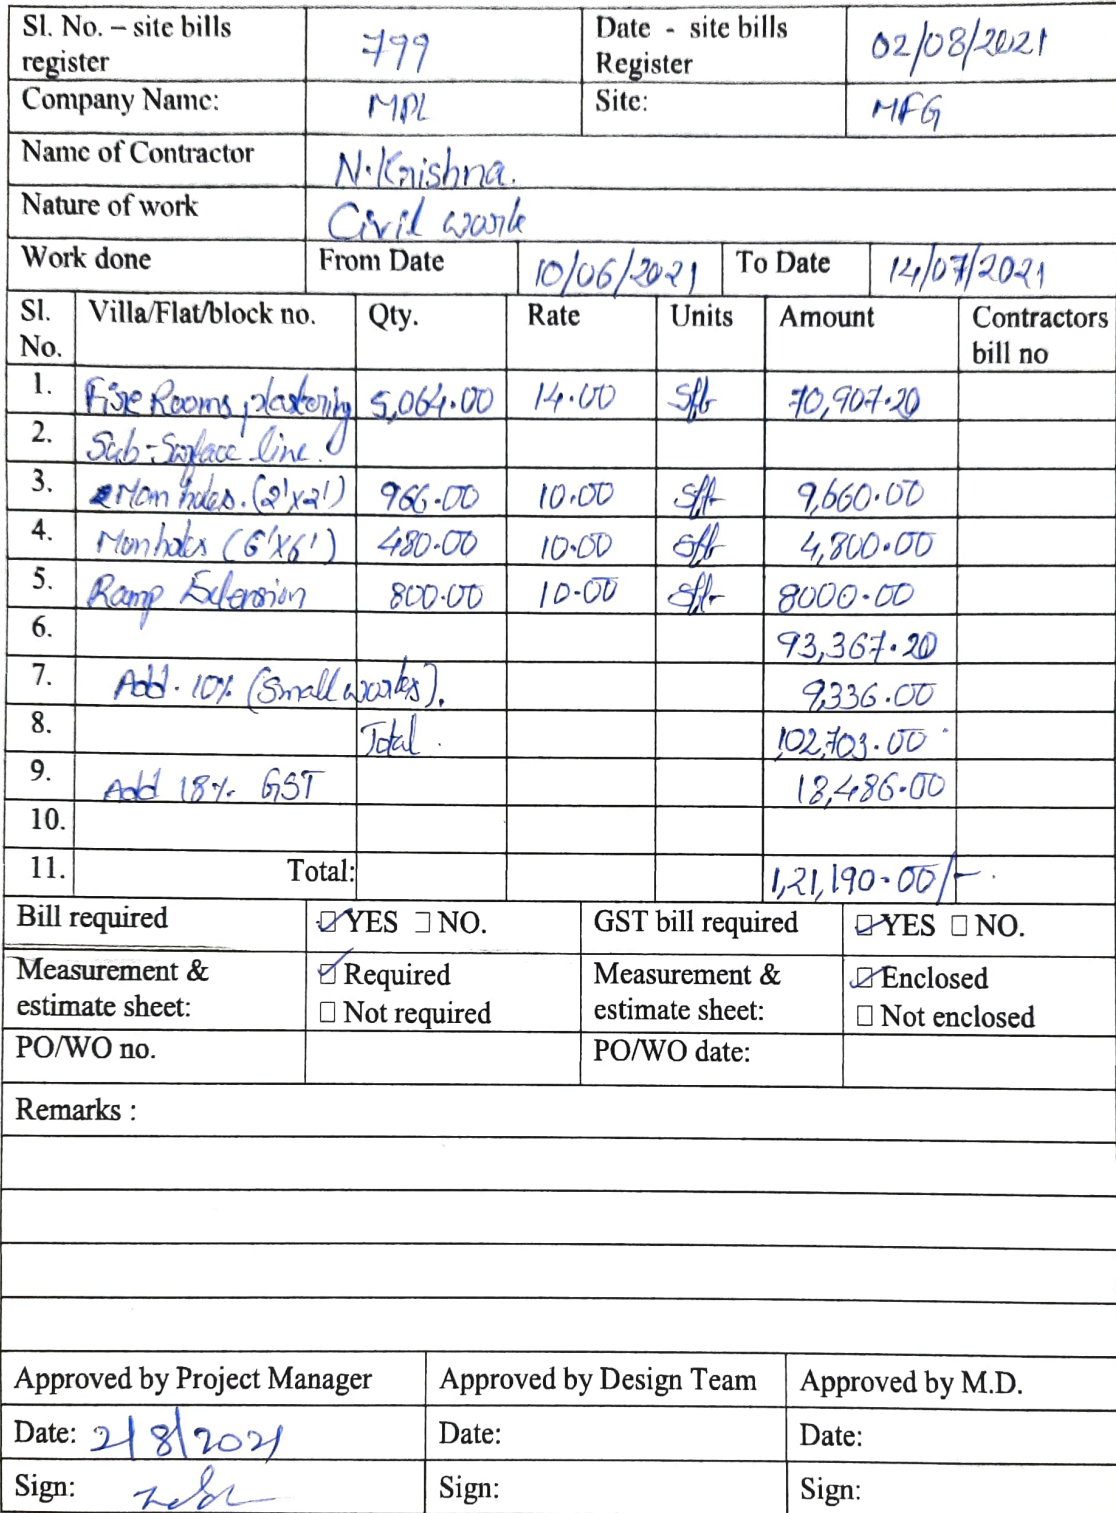 Sl. No. – site bills register 799 Date - site bills Register 02/08/2021
Company Name: MPL Site: MFG
Name of Contractor N. Krishna.
Nature of work Civil work
Work done From Date 10/06/2021 To Date 14/07/2021
Sl. No. Villa/Flat/block no. Qty. Rate Units Amount Contractors bill no
1. Fire Rooms, plastering 5,064.00 14.00 Sft 70,907.20
2. Sub-Surface line.
3. Man holes. (2'x2') 966.00 10.00 Sft 9,660.00
4. Manholes (6'x6') 480.00 10.00 Sft 4,800.00
5. Ramp Extension 800.00 10.00 Sft 8000.00
6. 93,367.20
7. Add. 10% (Small works). 9,336.00
8. Total. 102,703.00
9. Add 18% GST 18,486.00
10.
11. Total: 1,21,190.00/-
Bill required ☑ YES ☐ NO. GST bill required ☑ YES ☐ NO.
Measurement & estimate sheet: ☑ Required ☐ Not required Measurement & estimate sheet: ☑ Enclosed ☐ Not enclosed
PO/WO no. PO/WO date:
Remarks :
Approved by Project Manager Approved by Design Team Approved by M.D.
Date: 2/8/2021 Date: Date:
Sign: Sign: Sign: